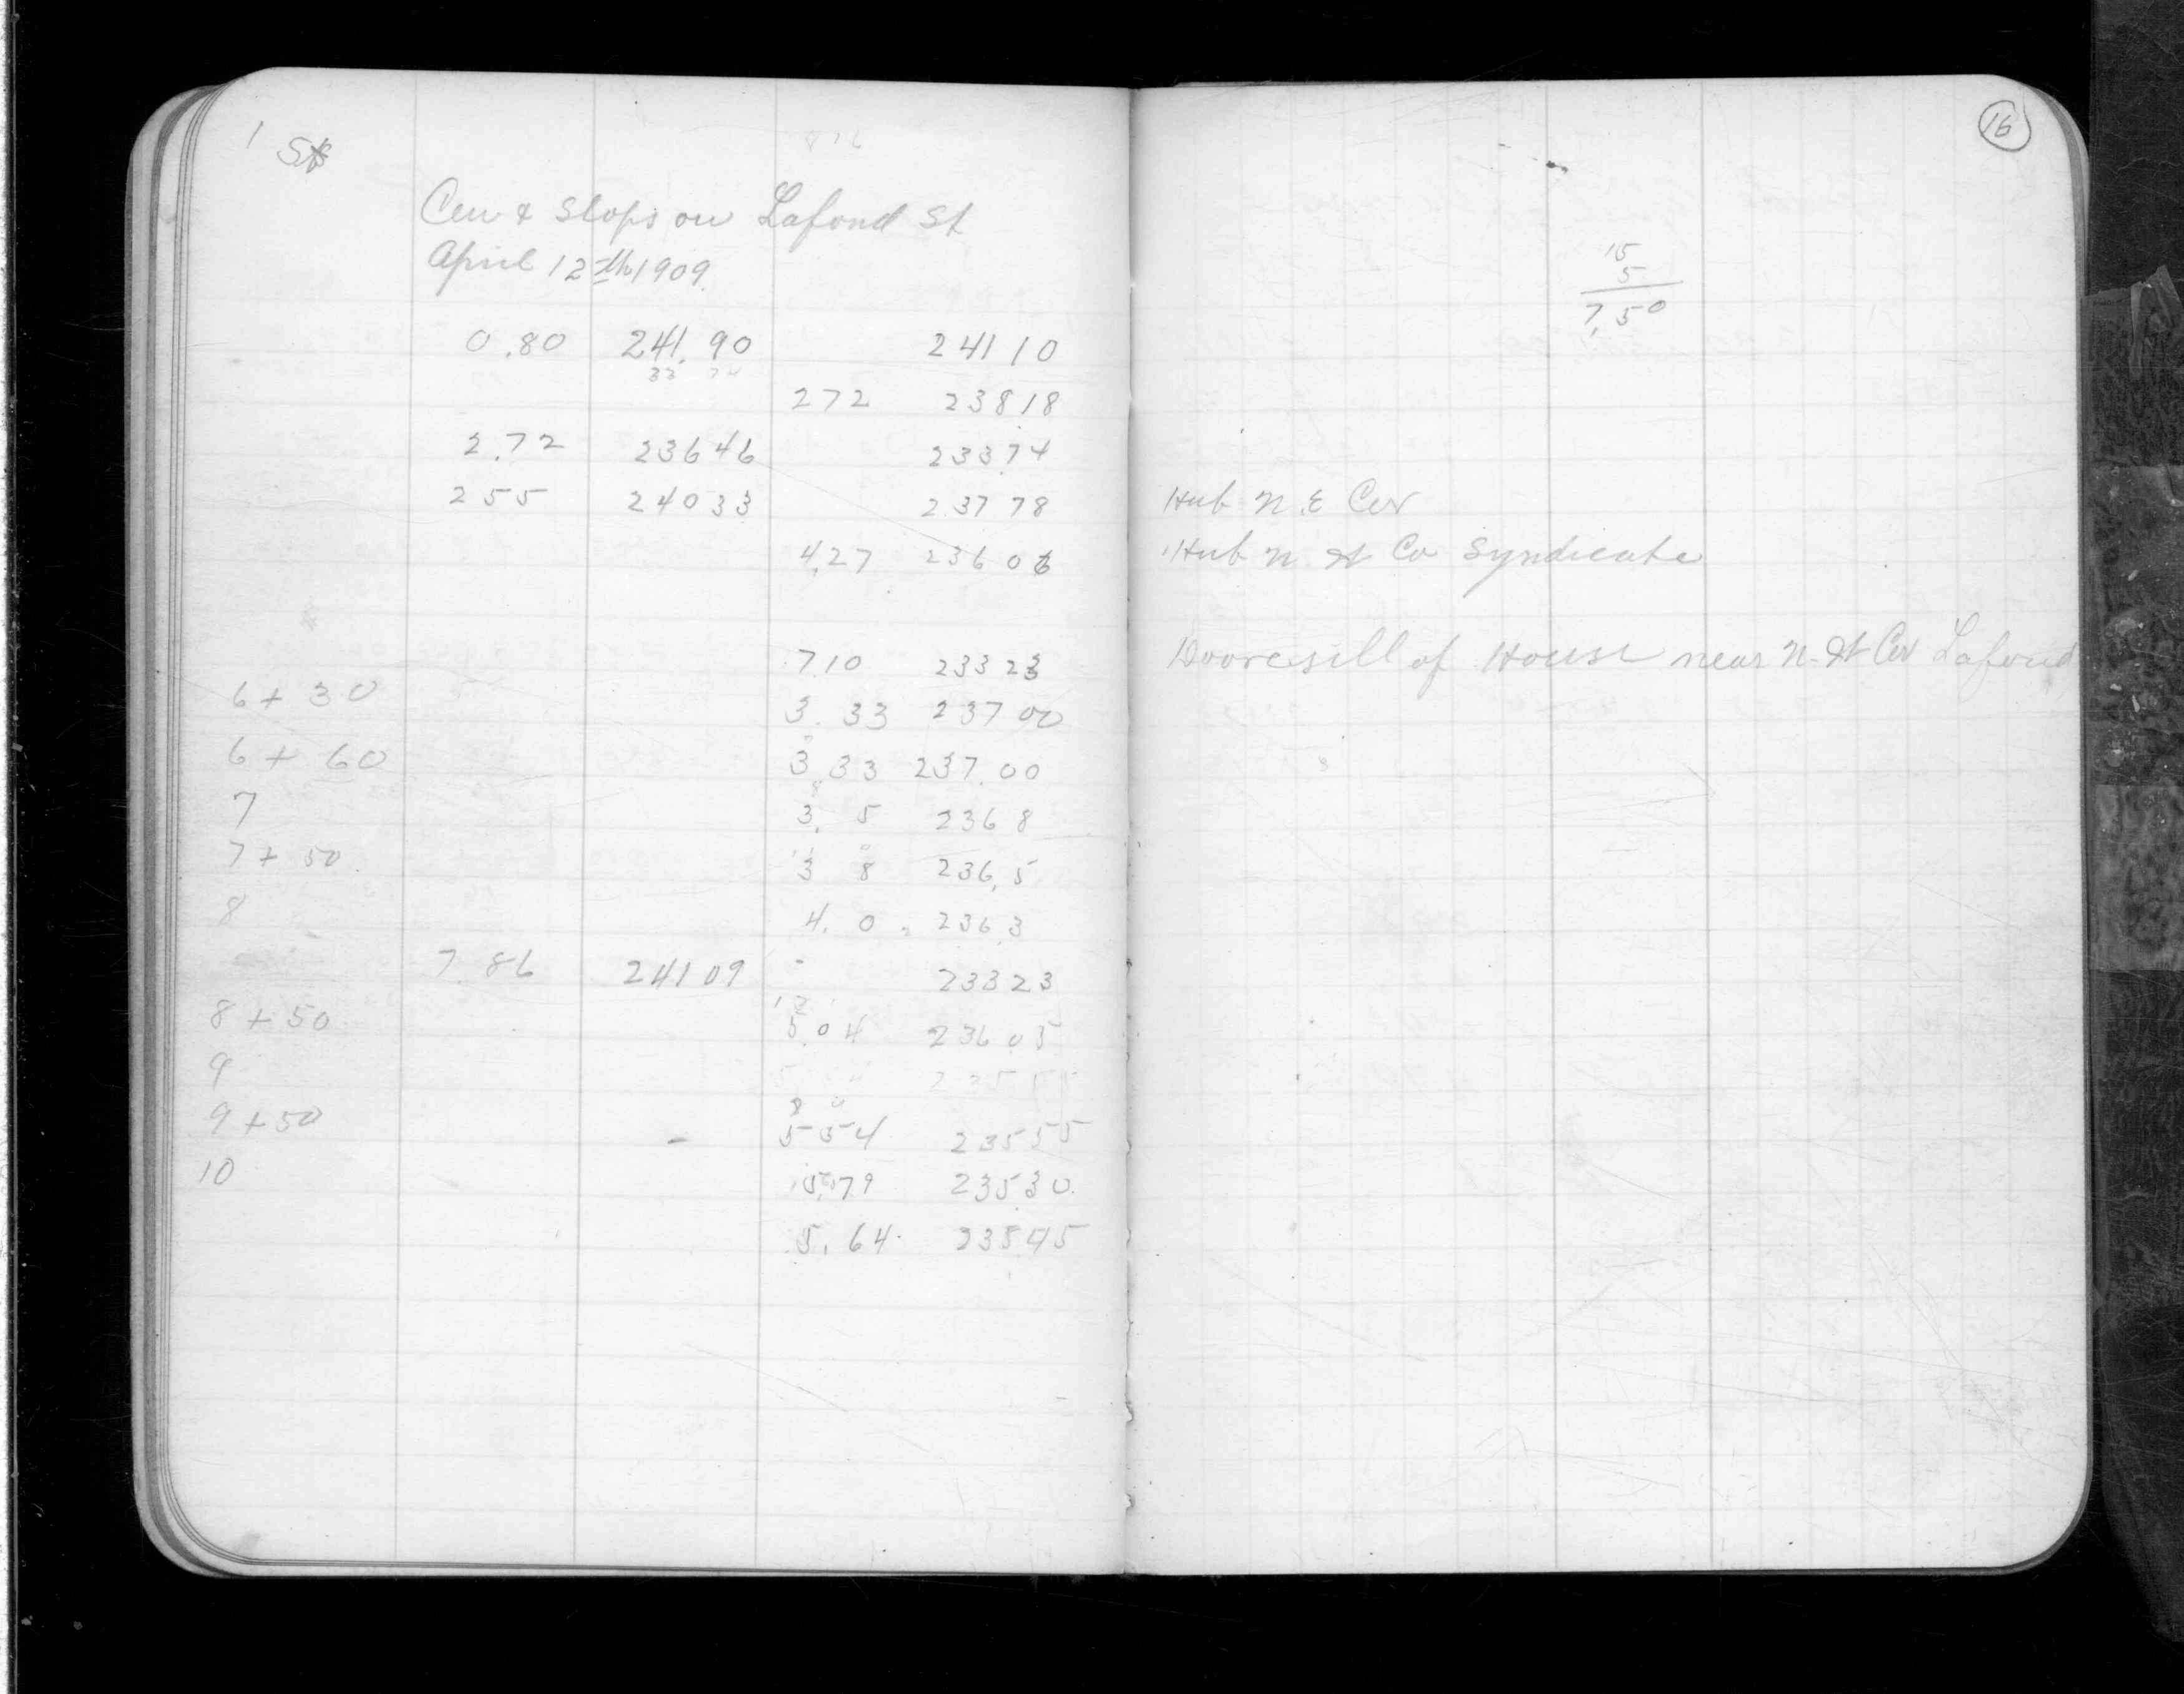 1 Sta
Cen & Slops on Lafond St
April 12th 1909.
0.80 241.90 241 10
33 74
272 238 18
2.72 236 46 233.74
2 55 240 33 237 78
4.27 236 06
7 10 233 23
6 + 30 3.33 237 00
6 + 60 3.33 237.00
7 3.5 236 8
7 + 50 3 8 236.5
8 4.0 236.3
7.86 241 09 233 23
8 + 50 5.04 236 05
9 235 55
9 + 50 5 54 235 55
10 5.79 235 30
5.64 235 45
16
15
5
7,50
Hub N.E Cor
Hub N W Co Syndicate
Dooresill of House near N.W Cor Lafond